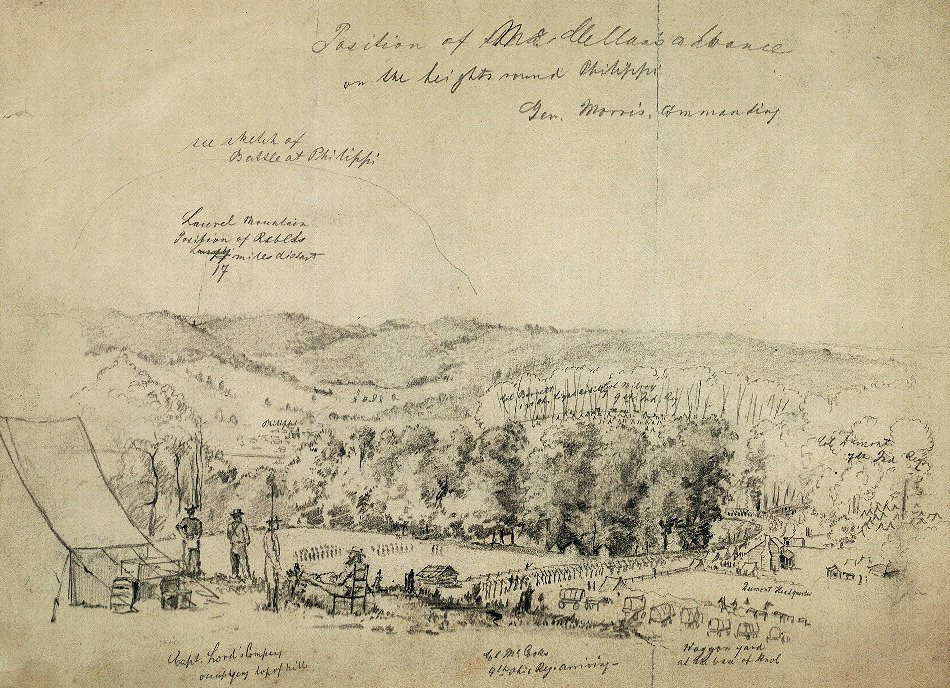 Position of Mc. Clellan's advance
on the heights round Philippi
Gen. Morris. Commanding
see sketch of
Battle at Philippi
Laurel Mountain
Position of Rebels
miles distant
17
Philippi
Col Milroy
9th Ind. Reg
Col Dumont
7th Ind Reg
Dumont Headquarters
Capt. Lord's Company
occupying top of hill
Col Mc Cooks
9th Ohio Reg. arriving
Waggon yard
at the base of Knob